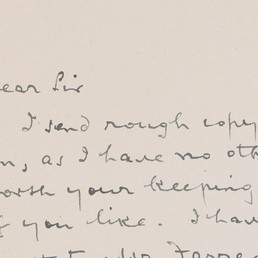 ear Sir
I send rough copy
n, as I have no oth
orth your keeping
f you like. I hav